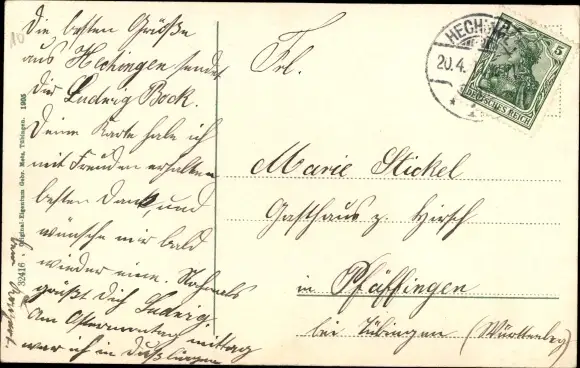 Die besten Grüße
aus Hechingen sendet
Dir Ludwig Bock.
Deine Karte habe ich
mit Freuden erhalten
besten Dank, und
wünsche mir bald
wieder eine. Nochmals
grüßt Dich Ludwig.
Am Ostermontag mittag
war ich in Dußlingen
32416 Original-Eigentum Gebr. Metz, Tübingen. 1905
10
HECHINGEN
20.4.
5
DEUTSCHES REICH
Frl.
Marie Stickel
Gasthaus z. Hirsch
in Pfäffingen
bei Tübingen (Württenbg)